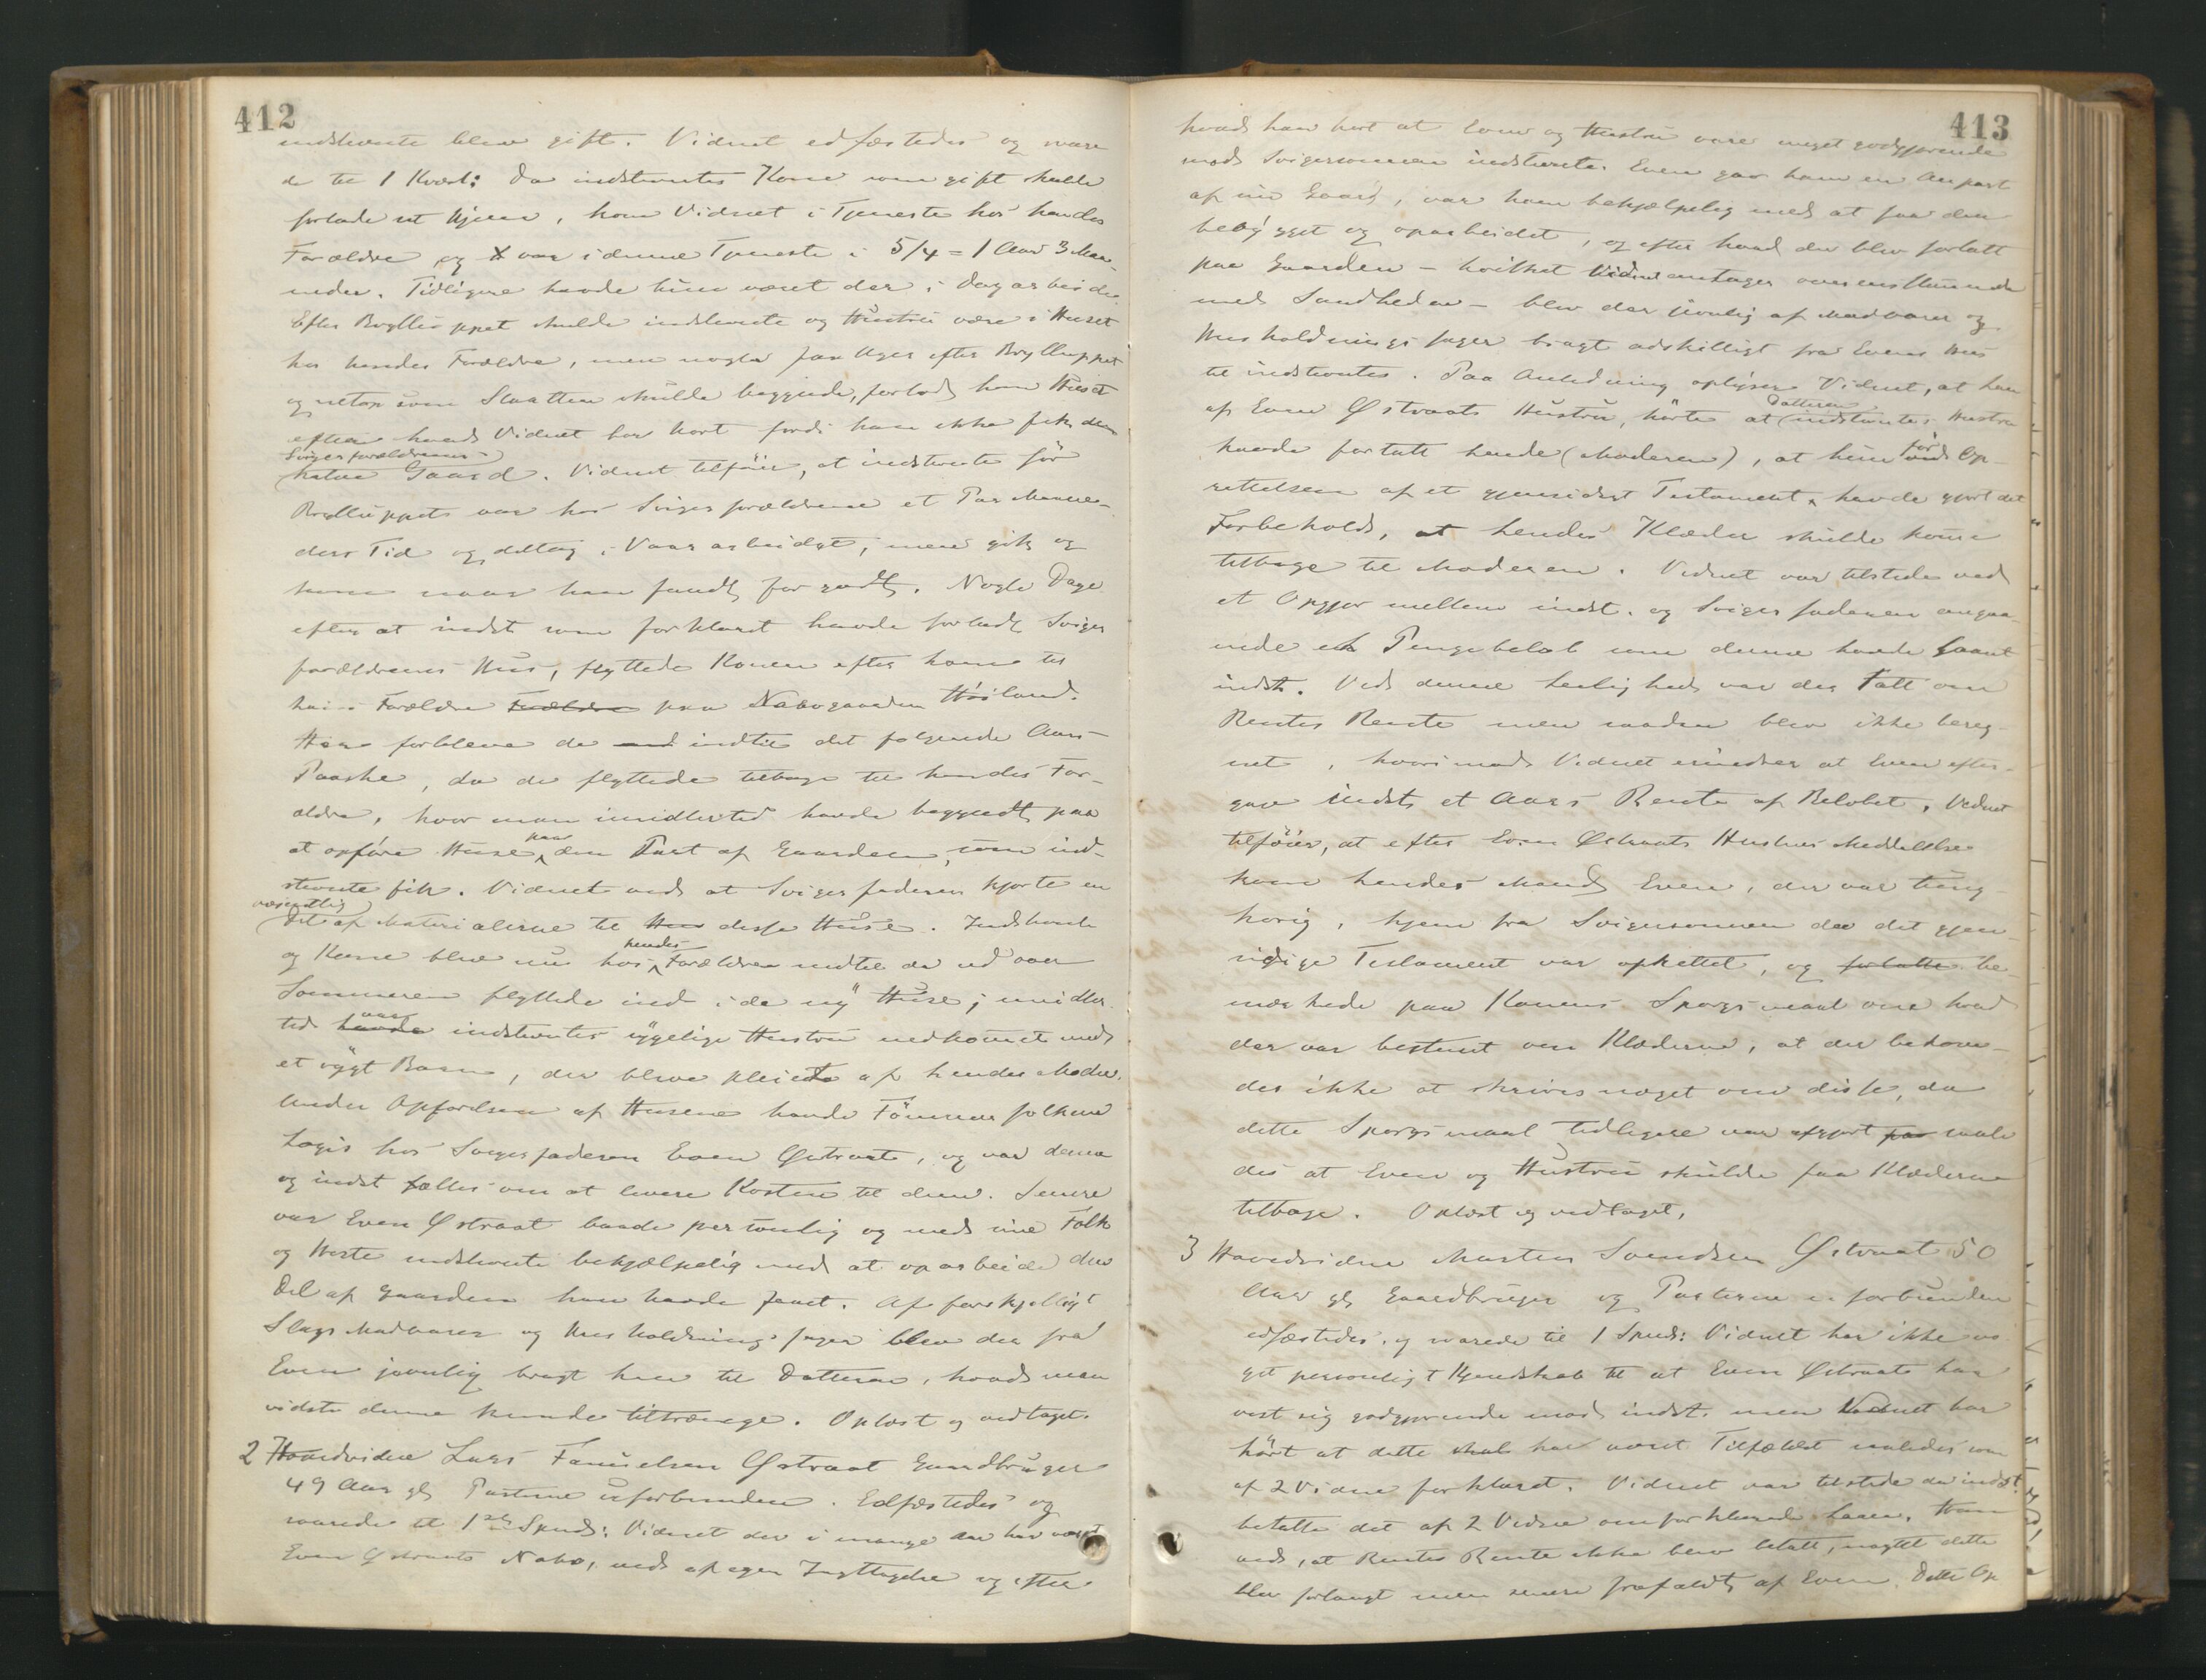 412
indstevnte blev gift. Vidnet edfæstedes og svare
de til 1 Kvæst: Da indstevntes Kone som gift skulde
forlade sit Hjem, kom Vidnet i Tjeneste hos hendes
Forældre og var i denne Tjeneste i 5/4 = 1 Aar 3 Maa-
neder. Tidligere havde hun været der i Dagarbeide.
Efter Brylluppet skulde indstevnte og Hustru være i Huset
hos hendes Forældre, men nogle faa Uger efter Brylluppet
og netop som Slaatten skulde begynde, forlod han Huset
efter hvad Vidnet har hørt fordi han ikke fik den
Svigerforældrenes
halve Gaard. Vidnet tilføier, at indstevnte før
Brylluppet var hos Svigerforældrene et Par Maane-
ders Tid og deltog i Vaararbeidet, men gik og
kom naar han fandt for godt. Nogle Dage
efter at indst som forklaret havde forladt Sviger
forældrenes Hus, flyttede Konen efter ham til
hans Forældre Forældre paa Nabogaarden Høiland.
Her forbleve de ind indtil det følgende Aars
Paaske, da de flyttede tilbage til hendes For-
ældre, hvor man imidlertid havde begyndt paa
at opføre Huse paa den Part af Gaarden, som ind-
stevnte fik. Vidnet ved at Svigerfaderen kjørte en
væsentlig
Del af Materialerne til Hus disse Huse. Indstevnte
og Kone blev nu hos hendes Forældre indtil de ud over
Sommeren flyttede ind i de ny Huse; imidler
tid havde var indstevntes sygelige Hustru nedkommet med
et sygt Barn, der blev pleiet af hendes Moder.
Under Opførelsen af Husene havde Tømmerfolkene
Logis hos Svigerfaderen Even Østraat, og var denne
og indst fælles om at levere Kosten til dem. Senere
var Even Østraat baade personlig og med sine Folk
og Heste indstevnte behjælpelig med at oparbeide den
Del af Gaarden han havde faaet. Af forskjelligt
Slags Madvarer og Husholdningssager blev der fra
Even jevnlig bragt hen til Datteren, hvad man
vidste denne kunde tiltrænge. Oplæst og vedtaget.
2 Hovedvidne Lars Samuelsen Østraat Gaardbruger
49 Aar gl, Parterne uforbunden. Edfæstedes og
svarede til 1ste Spm: Vidnet der i mange Aar har været
Even Østraats Nabo, ved af egen Iagttagelse og efter
413
hvad han hørt at Even og Hustru vare meget godgjørende
mod Svigersønnen indstevnte. Even gav ham en Anpart
af sin Gaard, var ham behjælpelig med at faa den
bebygget og oparbeidet, og efter hvad der blev fortalt
paa Gaarden – hvilket Vidnet antager overensstemmende
med Sandheden – blev der jevnlig af Madvarer og
Husholdningssager bragt adskilligt fra Evens Hus
til indstevnte. Paa Anledning oplyser Vidnet, at han
af Even Østraats Hustru, hørte at Datteren (indstevntes Hustru
havde fortalt hende (Moderen), at hun ved før Op-
rettelsen af et gjensidigt Testament, havde gjort det
Forbehold, at hendes Klæder skulde komme
tilbage til Moderen. Vidnet var tilstede ved
et Opgjør mellem indst. og Svigerfaderen angaa-
ende et Pengebeløb som denne havde laant
indst. Ved denne Leilighed var der Tale om
Rentes Rente men saadan blev ikke bereg-
net, hvorimod Vidnet erindrer at Even efter-
gav indst et Aars Rente af Beløbet. Vidnet
tilføier, at efter Even Østraats Hustrus Meddelelse
kom hendes Mand Even, der var tung-
hørig, hjem fra Svigersønnen da det gjen-
sidige Testament var oprettet, og fortalte be-
mærkede paa Konens Spørgsmaal om hvad
der var bestemt om Klæderne, at der behøve-
des ikke at skrives noget om disse, da
dette Spørgsmaal tidligere var afgjort paa saale
des at Even og Hustru skulde faa Klæderne
tilbage. Oplæst og vedtaget.
3 Hovedvidne Morten Svendsen Østraat 50
Aar gl, Gaardbruger og Parterne uforbunden
edfæstedes og svarede til 1 Spm: Vidnet har ikke no
get personligt Kjendskab til at Even Østraat har
vist sig godgjørende mod indst. men Vidnet har
hørt at dette skal har været Tilfældet saaledes som
af 2 Vidne forklaret. Vidnet var tilstede da indst.
betalte det af 2 Vidne omforklarede Laan. Han
ved, at Rentes Rente ikke blev betalt, uagtet dette
blev forlangt men senere frafaldt af Even. Dette Op